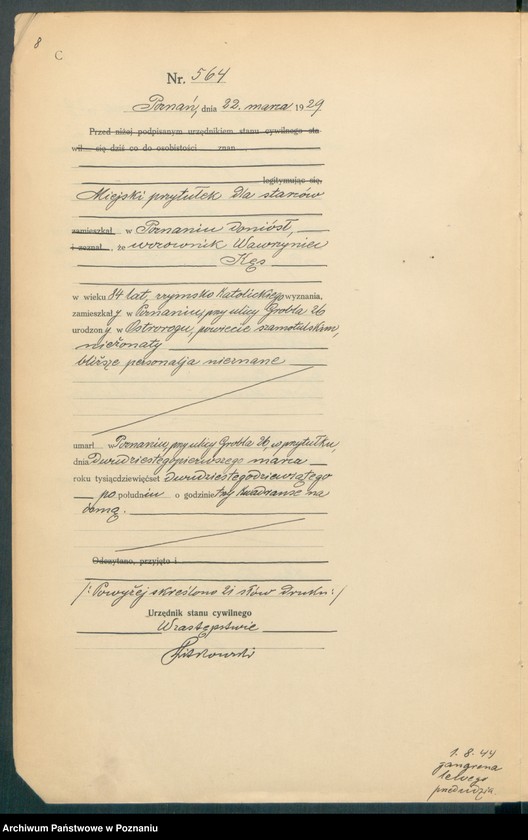 8
C
Nr. 564
Poznań, dnia 22. marca 1929
Przed niżej podpisanym urzędnikiem stanu cywilnego sta
wił się dziś co do osobistości znan
legitymując się,
Miejski przytułek dla starców
zamieszkał w Poznaniu doniósł,
i zeznał, że wzrownik Wawrzyniec
Kęs
w wieku 84 lat, rzymsko katolickiego wyznania,
zamieszkały w Poznaniu przy ulicy Grobla 26
urodzony w Ostrorogu, powiecie szamotulskim,
nieżonaty
bliższe personalja nieznane
umarł w Poznaniu, przy ulicy Grobla 26, w przytułku,
dnia dwudziestegopierwszego marca
roku tysiącdziewięćset dwudziestegodziewiątego
po południu o godzinie trzy kwadranse na
ósmą.
Odczytano, przyjęto i
/: Powyżej skreślono 21 słów druku :/
Urzędnik stanu cywilnego
W zastępstwie
1. 8. 44
zangrena
lewego
Archiwum Państwowe w Poznaniu